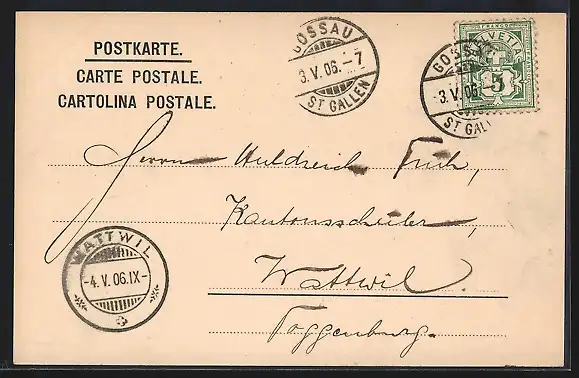 POSTKARTE.
CARTE POSTALE.
CARTOLINA POSTALE.
GOSSAU
3.V.06.-7
ST GALLEN
GOSSAU
3.V.06.
ST GALL
FRANCO
HELVETIA
5
Herrn Huldreich Früh,
Kantonsschüler,
Wattwil.
Toggenburg.
WATTWIL
-4.V.06.IX-